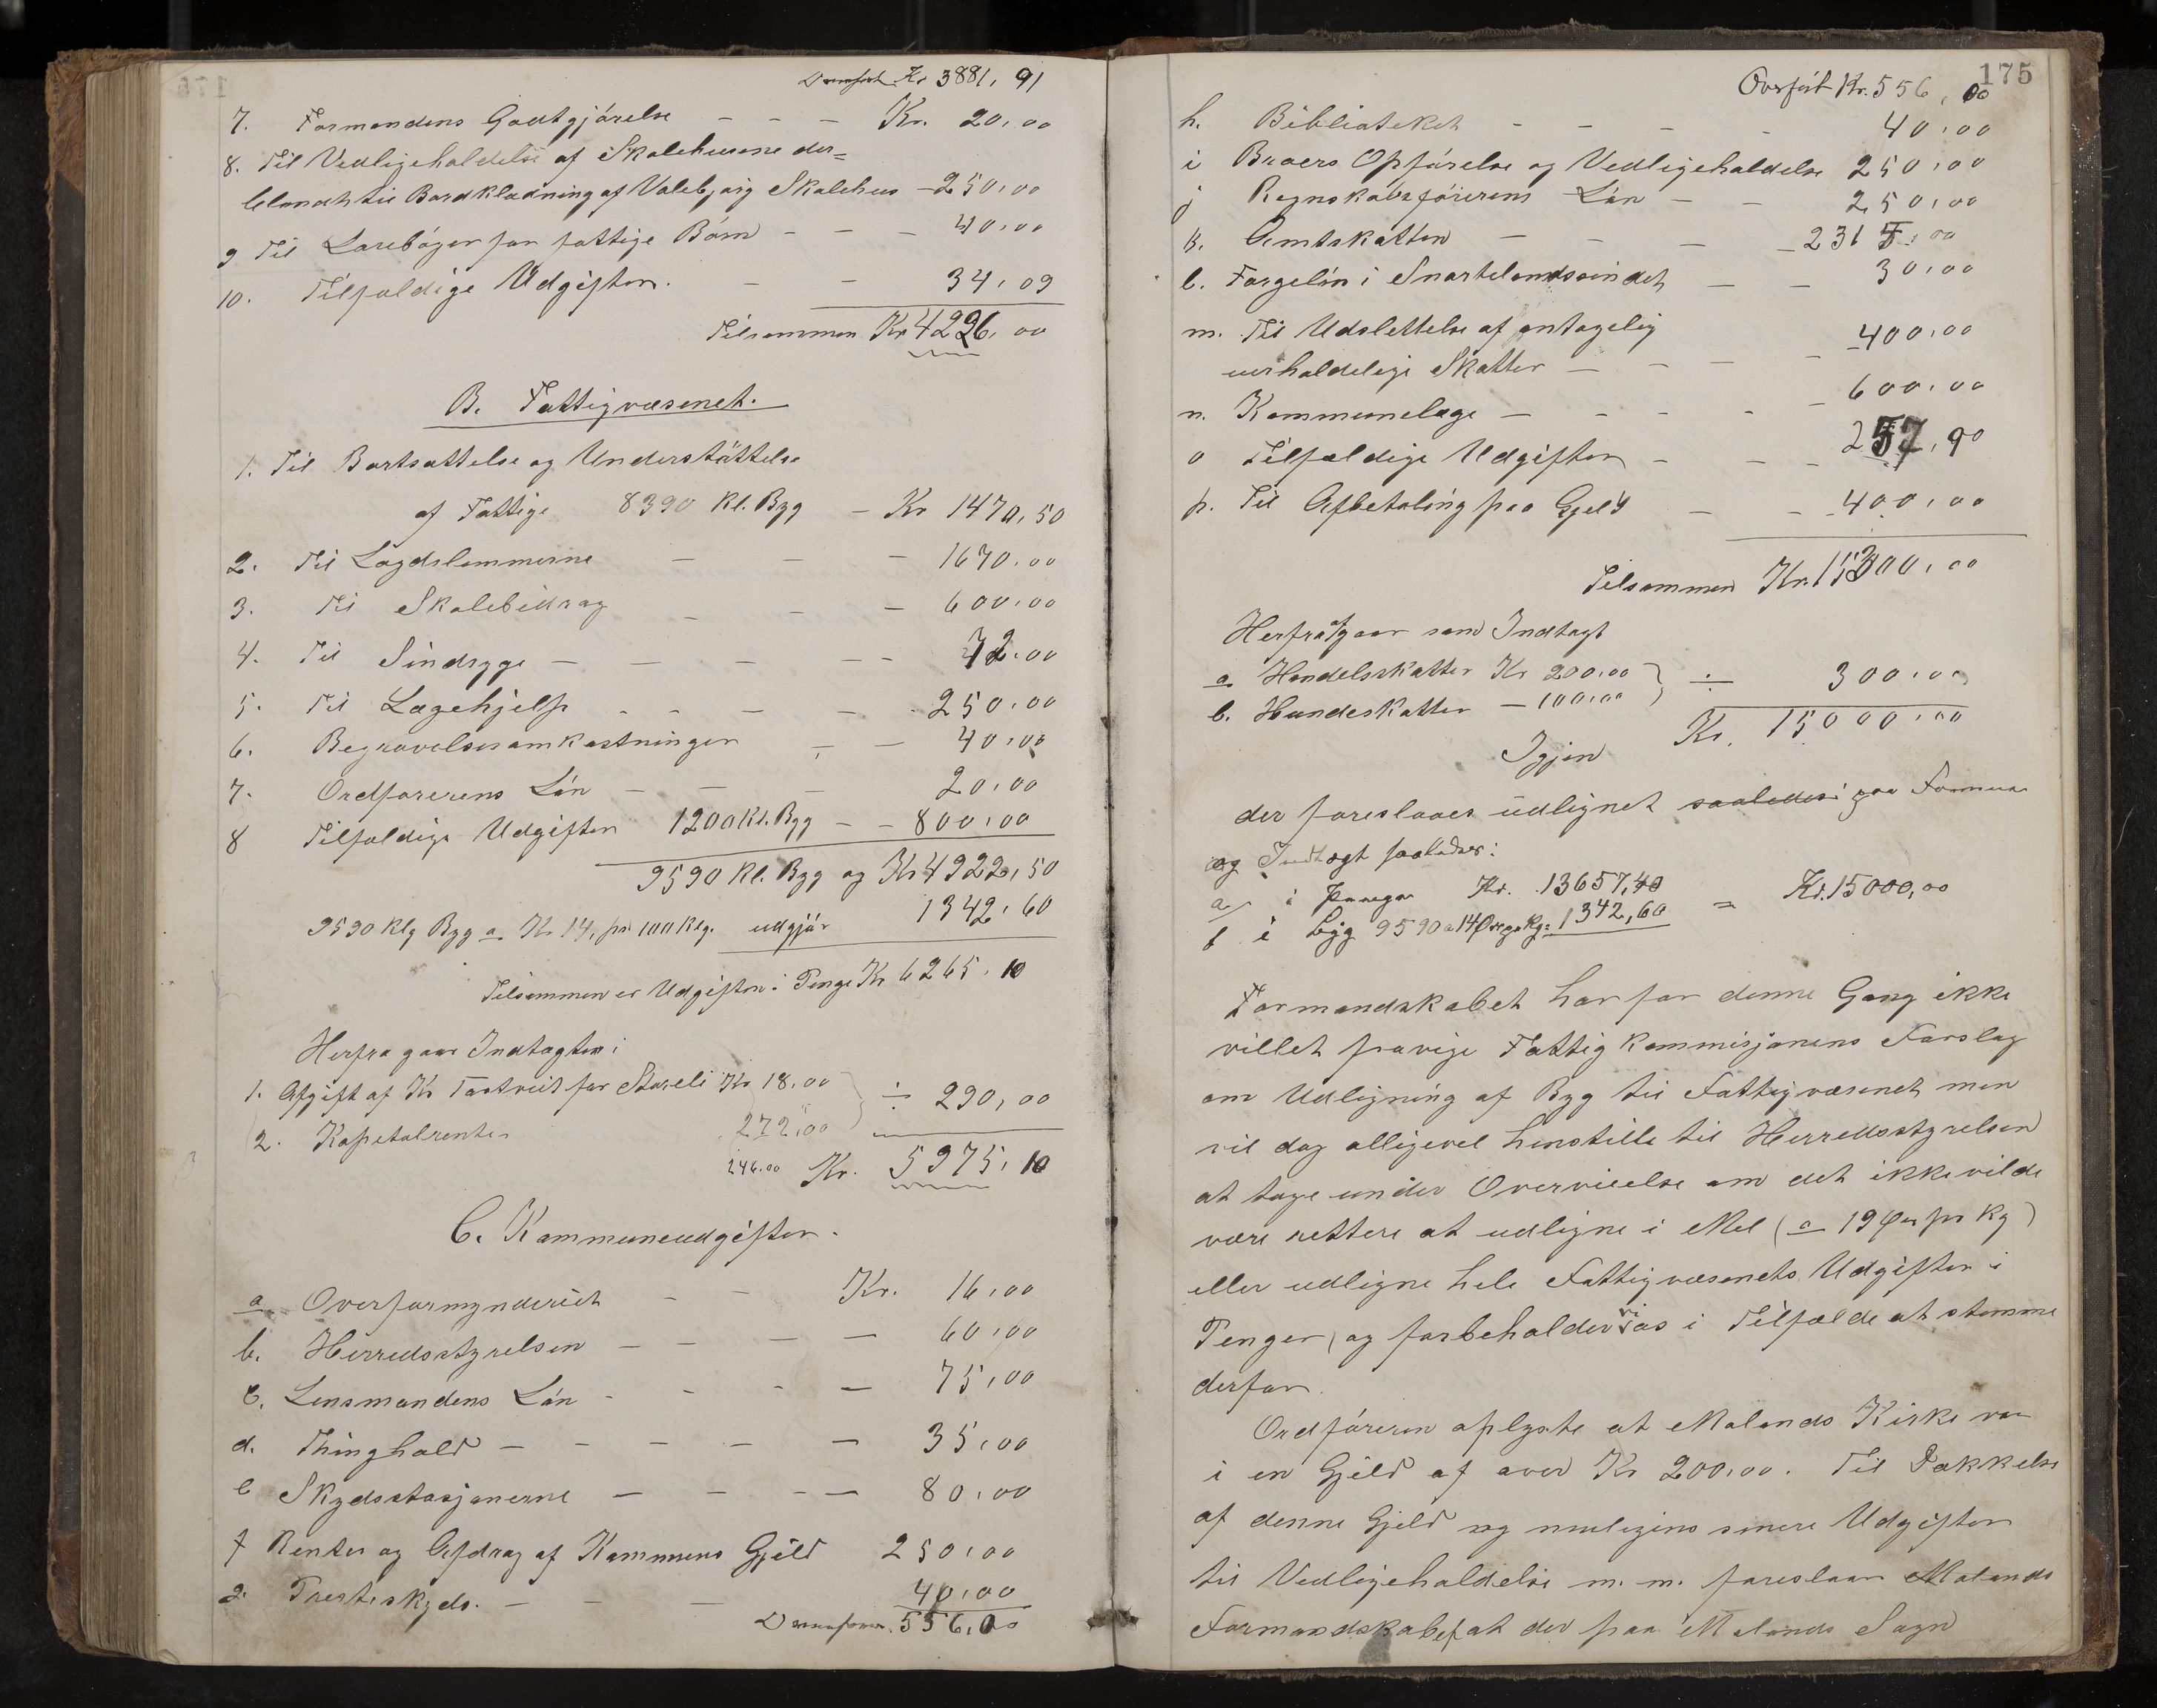 Kr 3881,91
7. Formandens Godtgjörelse - - - Kr. 20,00
8. Til Vedligeholdelse af Skolehusene der=
iblandt til Bordklædning af Valebjørg Skolehus - 250,00
9 Til Lærebøger for fattige Börn - - - 40,00
10. Tilfældige Udgifter. - - 34,09
Tilsammen Kr 4226,00
B. Fattigvæsenet.
1. Til Bortsættelse og Understöttelse
af Fattige 8390 Kl. Byg - Kr 1470,50
2. Til Lægdslemmerne - - - 1670,00
3. Til Skolebidrag - - - 600,00
4. Til Sindsyge - - - - - 72,00
5. Til Lægehjelp - - - - 250,00
6. Begravelsesomkostninger - - 40,00
7. Ordförerens Lön - - - 20,00
8 Tilfældige Udgifter 1200 Kl. Byg - - 800,00
9590 Kl. Byg og Kr 4922,50
9590 Klg Byg a Kr 14, pr 100 Klg. udgjör 1342,60
Tilsammen er Udgiften i Penge Kr 6265,10
Herfra gaar Indtægten:
1. Afgift af Kr Tastveit for Storeli Kr 18,00
÷ 290,00
2. Kapitalrenter 272,00
246.00 Kr. 5975,10
C. Kommuneudgifter.
a Overformynderiet - - Kr. 16,00
b. Herredsstyrelsen - - - - 60,00
c. Lensmandens Lön - - - - 75,00
d. Thinghold - - - - - 35,00
e Skydsstasjonerne - - - - 80,00
f Renter og Afdrag af Kommunens Gjæld 250,00
g. Presteskyds. - - - 40,00
556,00
175
Overfört Kr. 556,00
h. Biblioteket - - - - 40,00
i Broers Opförelse og Vedligeholdelse 250,00
j Regnskabsförerens Lön - - 250,00
k. Amtskatten - - - - 2315,00
l. Færgelön i Snartelandssundet - - 30,00
m. Til Udslettelse af antagelig
uerholdelige Skatter - - - - 400,00
n. Kommunelæge - - - - - 600,00
o Tilfældige Udgifter - - - 257,90
p. Til Afbetaling paa Gjeld - - - 400,00
Tilsammen Kr. 15300,00
Herfra afgaar som Indtægt
a Handelsskatter Kr 200,00
÷ 300,00
b. Hundeskatter - 100,00
Igjen Kr. 15000,00
der foreslaaes udlignet saaledes: paa Formue
og Indtægt saaledes:
a i Penger Kr. 13657,40
= Kr. 15000,00
b i Byg 9590 a 14 Øre pr Kg = 1342,60
Formandskabet har for denne Gang ikke
villet fravige Fattigkommisjonens Forslag
om Udligning af Byg til Fattigvæsenet men
vil dog alligevel henstille til Herredsstyrelsen
at tage under Overveielse om det ikke vilde
være rettere at udligne i Mel (a 19 Øre pr Kg)
eller udligne hele Fattigvæsenets Udgifter i
Penger, og forbeholder vi os i Tilfælde at stemme
derfor.
Ordföreren oplyste at Molands Kirke var
i en Gjeld af over Kr 200,00. Til Dækkelse
af denne Gjeld og muligens senere Udgifter
til Vedligeholdelse m. m. foreslaar Molands
Formandskabet at der paa Molands Sogn